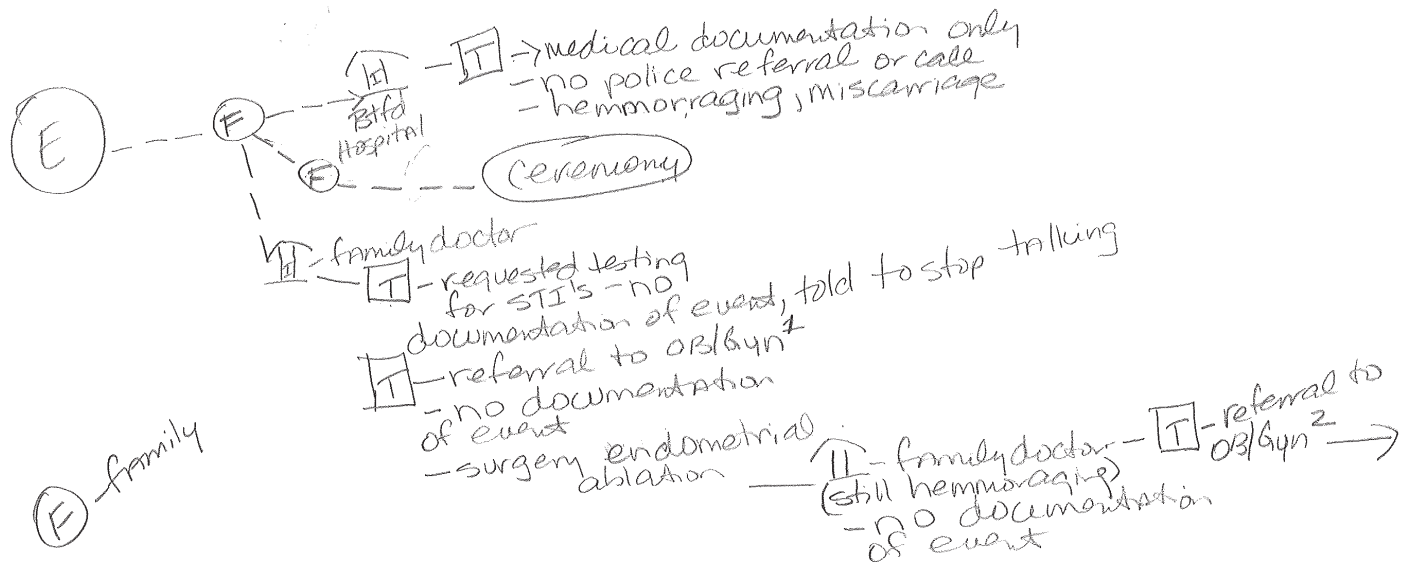 E
F
I
Btfd
Hospital
T → medical documentation only
- no police referral or call
- hemmorraging, miscarriage
F
Ceremony
I - family doctor
T - requested testing
for STI's - no
documentation of event, told to stop talking
T - referral to OB/Gyn 1
- no documentation
of event
- surgery endometrial
ablation
I - family doctor
(still hemmoraging)
- no documentation
of event
T - referral to
OB/Gyn 2
F - family